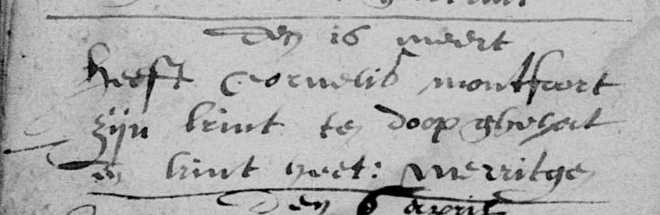 den 16 meert
heeft Cornelis montfoort
zijn kint te doop ghehat
en kint heet: merritgen
den 6 april